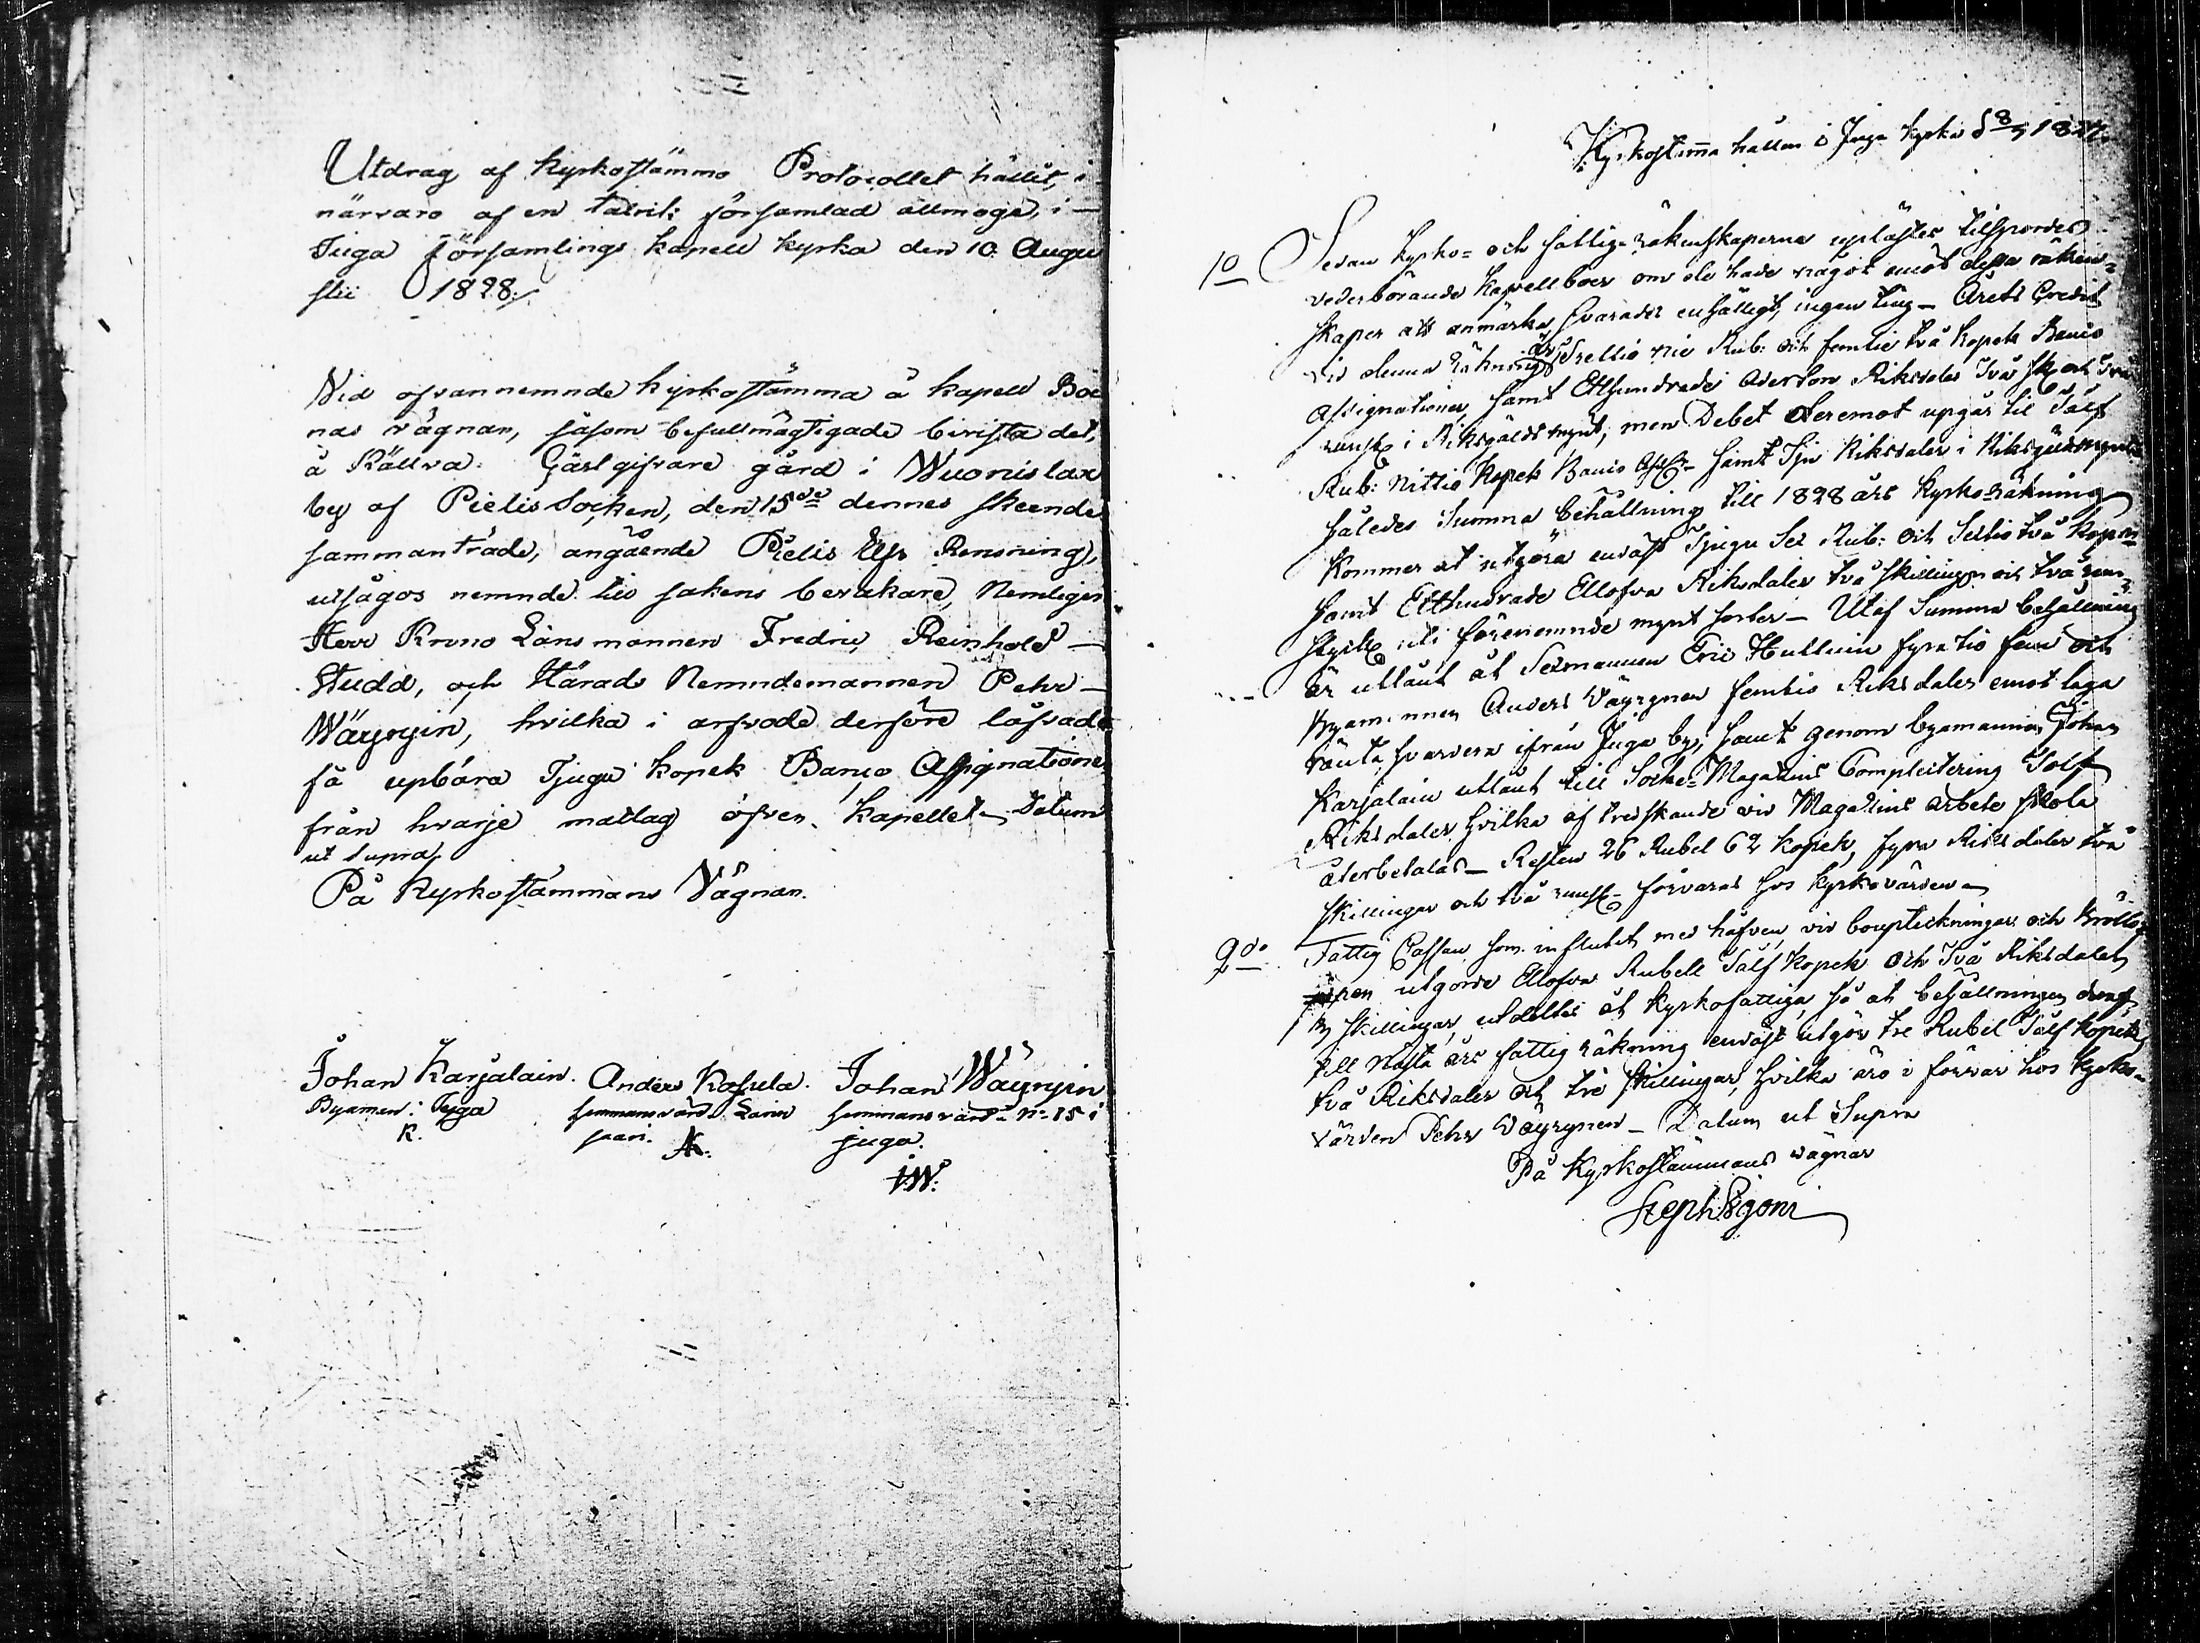 Utdrag af Kyrkostämmo Protocollet hållit, i
närvaro af en talrik församlad allmoge, i
Juga Församlings kapell kyrka den 10 Augu
sti 1828
Vid ofvannemnde kyrkostämma å kapell Boe
nas vägnar, såsom befullmägtigade bevista det,
å Källva Gästgifvare gård i Wuonislax
by af Pielis Socken, den 15de dennes skeende
sammanträde, angående Pielis Elfs Rensning,
utsågos nemnde til sakens bevakare, Nemligen
Herr Krono Länsmannen Fredric Reinhold
Studd, och Härads Nemndemannen Pehr
Wäyryin, hvilka i arfvode derföre låfvade
få upbära Tjugu kopek Banco Assignationer
från hvarje matlag öfver Kapellet. Datum
ut Supra
På Kyrkostämmans Vägnar.
Johan Karjalain. Anders Kasula. Johan Wäyryin
Byamen i Juga hemmansvärd hemmansvärd N: 15 i
K. AK. juga.
IW.
Kyrkostäma hållen i Juga kyrka d 8/7 1827.
1o Sedan Kyrko- och fattig-räkenskaperna uplästes tilspordes
vederbörande Kapellboer om de hade något emot dessa räken-
skaper att anmärka, svarades enhälligt, ingen ting – Årets Credit
vid denna räkning är Trettio nie Rub: och femtie två kopek Banco
Assignationer, samt Etthundrade Aderton Riksdaler Två sk och två
runst i Riksgälds mynt, men Debet deremot upgår til Tolf
Rub: Nittio kopek Banco Ass: samt Sju Riksdaler i Riksgäldsmynt
således Summa behållning till 1828 års kyrko-räkning
kommer at utgöra endast Tjugu Sex Rub: och Sextio två kopek
samt Etthundrade Ellofva Riksdaler två skillingar och två run-
styck uti förenemnde mynt sorter – Utaf Summa behållning
är utlånt åt Sexmannen Eric Huttuin fyratio fem och
byamannen Anders Wäyrynen femtio Riksdaler emot laga
ränta hvardera ifrån Juga by, samt genom byamannen Johan
Karjalain utlånt till Socke-Magazins Completering Tolf
Riksdaler hvilka af tredskande vid Magazins arbete skola
återbetalas – Resten 26 Rubel 62 kopek, fyra Riksdaler två
skillingar och två runst förvaras hos Kyrkovärden
2do Fattig Cassan som influtit med håfven, vid bouptekningar och bröllo-
pen utgorde Ellofva Rubel Tolf kopek och Två Riksdaler
skillingar, utdeltes åt kyrkofattiga, så at behållningen
till Nästa års fattig räkning endast utgör tre Rubel Tolf kopek,
två Riksdaler och tre skillingar, hvilka äro i förvar hos kyrko-
värden Pehr Wäyrynen – Datum ut Supra
På Kyrkostämmans vägnar